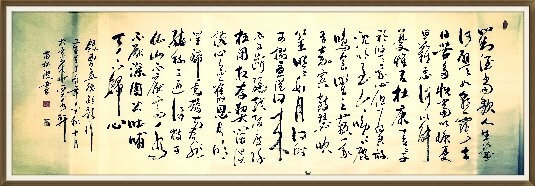 對酒當歌人生幾
何譬如朝露去
日苦多慨當以慷憂
思難忘何以解
憂唯有杜康青青子
衿悠悠我心但為君故
沈吟至今呦呦鹿
鳴食野之蘋我
有嘉賓鼓瑟吹
笙明明如月何時
可掇憂從中來
不可斷絕越陌度阡
枉用相存契闊談讌
心念舊恩月明
星稀烏鵲南飛
繞樹三匝何枝可
依山不厭高水
不厭深周公吐哺
天下歸心
錄曹操短歌行